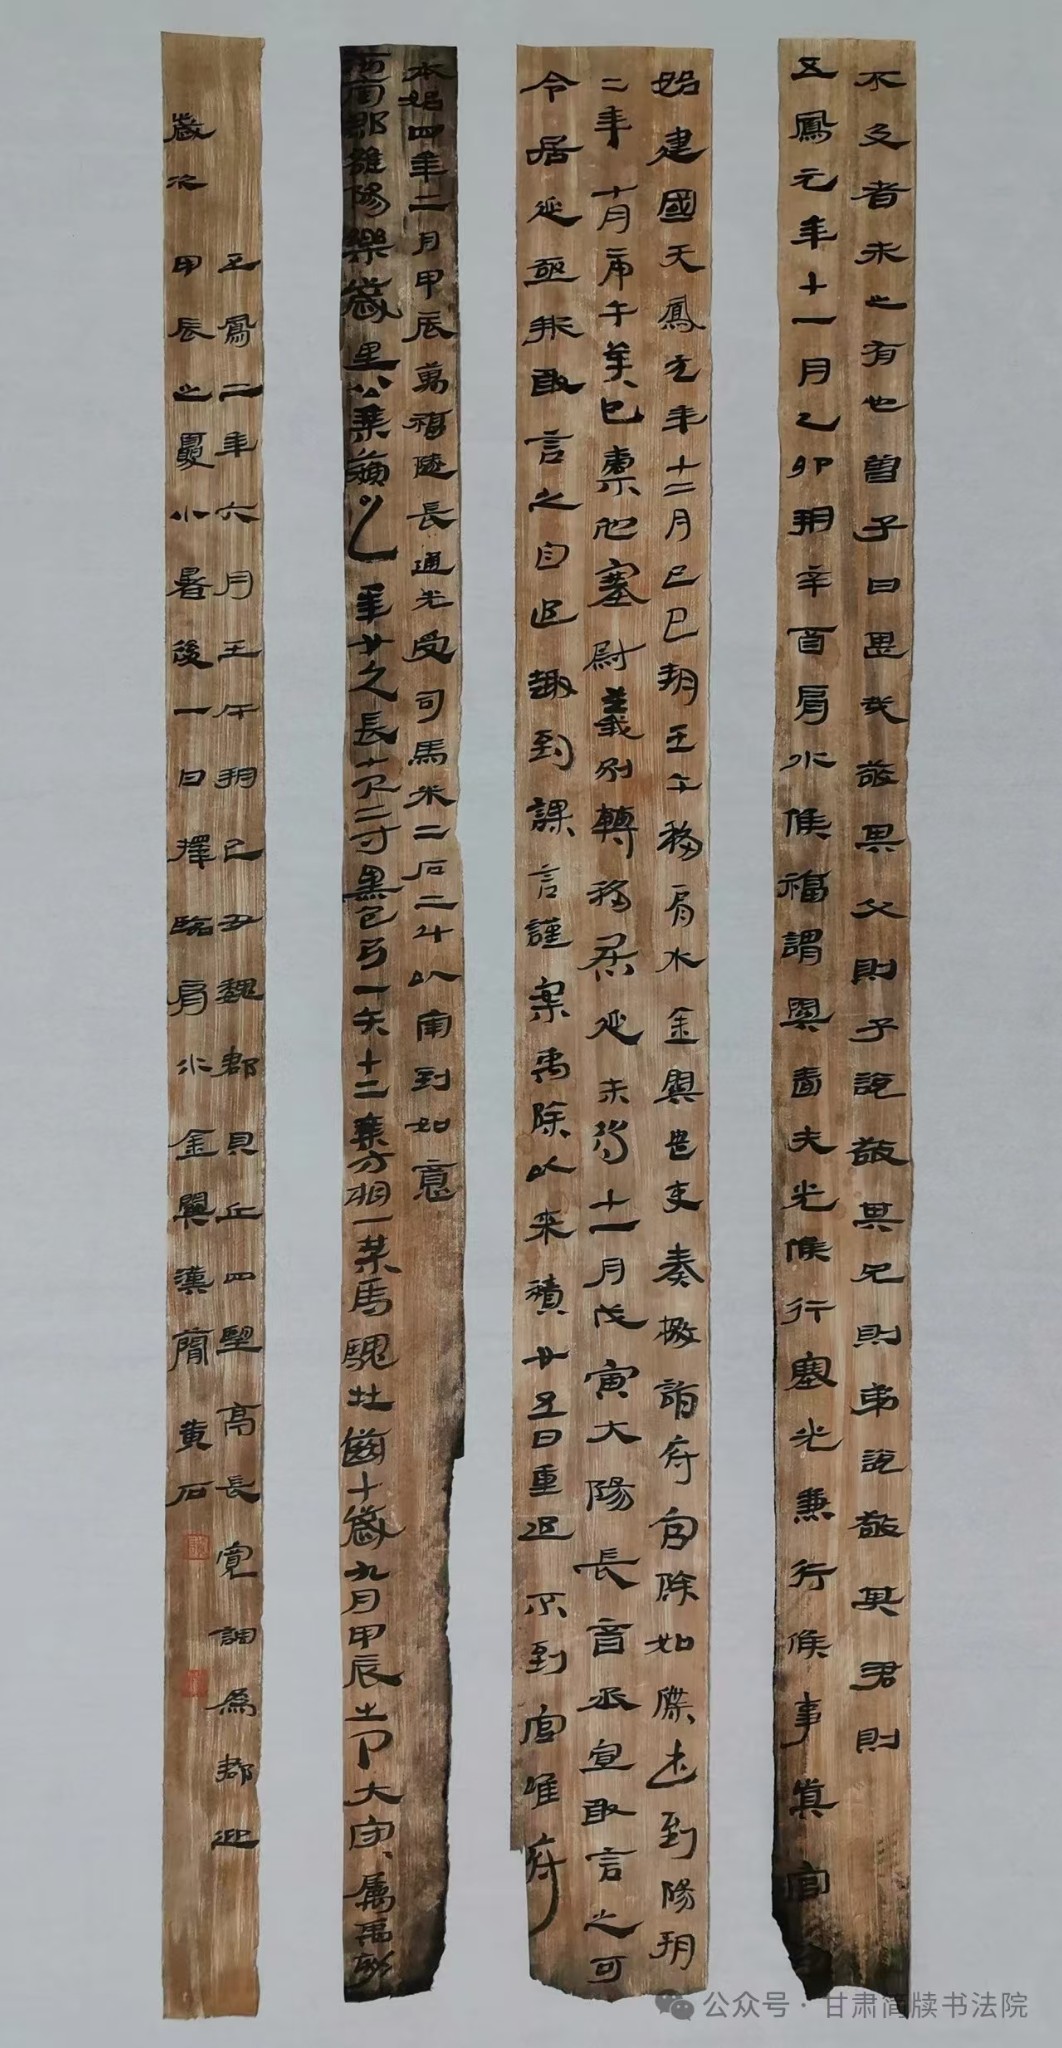 不及者未之有也曾子曰畏哉敬其父則子説敬其兄則弟説敬其君則
五鳳元年十一月乙卯朔辛酉肩水候福謂關嗇夫光候行塞光兼行候事真官
始建國天鳳元年十二月己巳朔壬午移肩水金關 吏奏檄詣府自除如牒書到陽朔
二年十月庚午 巳 佗塞尉義別轉移居延 十一月戊寅大陽長音丞宣敢言之可
令居延亟報敢言之自追趣到課言謹案禹除以來積廿五日重追不到官唯府
本始四年二月甲辰萬福隧長通光受司馬米二石二斗以南到如意
西河郡雒陽樂歲里公乘蘇 年廿 長七尺二寸黑色弓一矢十二乘方相一乘馬騩牡齒十歲九月甲辰 大守屬禹
五鳳二年六月壬午朔己丑魏郡貝丘四望亭長寬調為郡迎
歲次甲辰之夏小暑後一日擇臨肩水金關漢簡黄石
公众号·甘肃简牍书法院